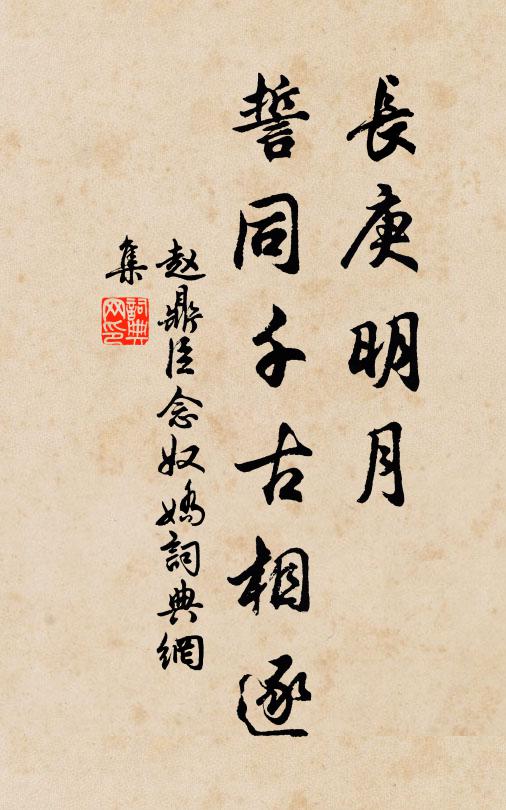 長庚明月
誓同千古相逐
赵鼎臣念奴嬌詞典網
集
詞典網印